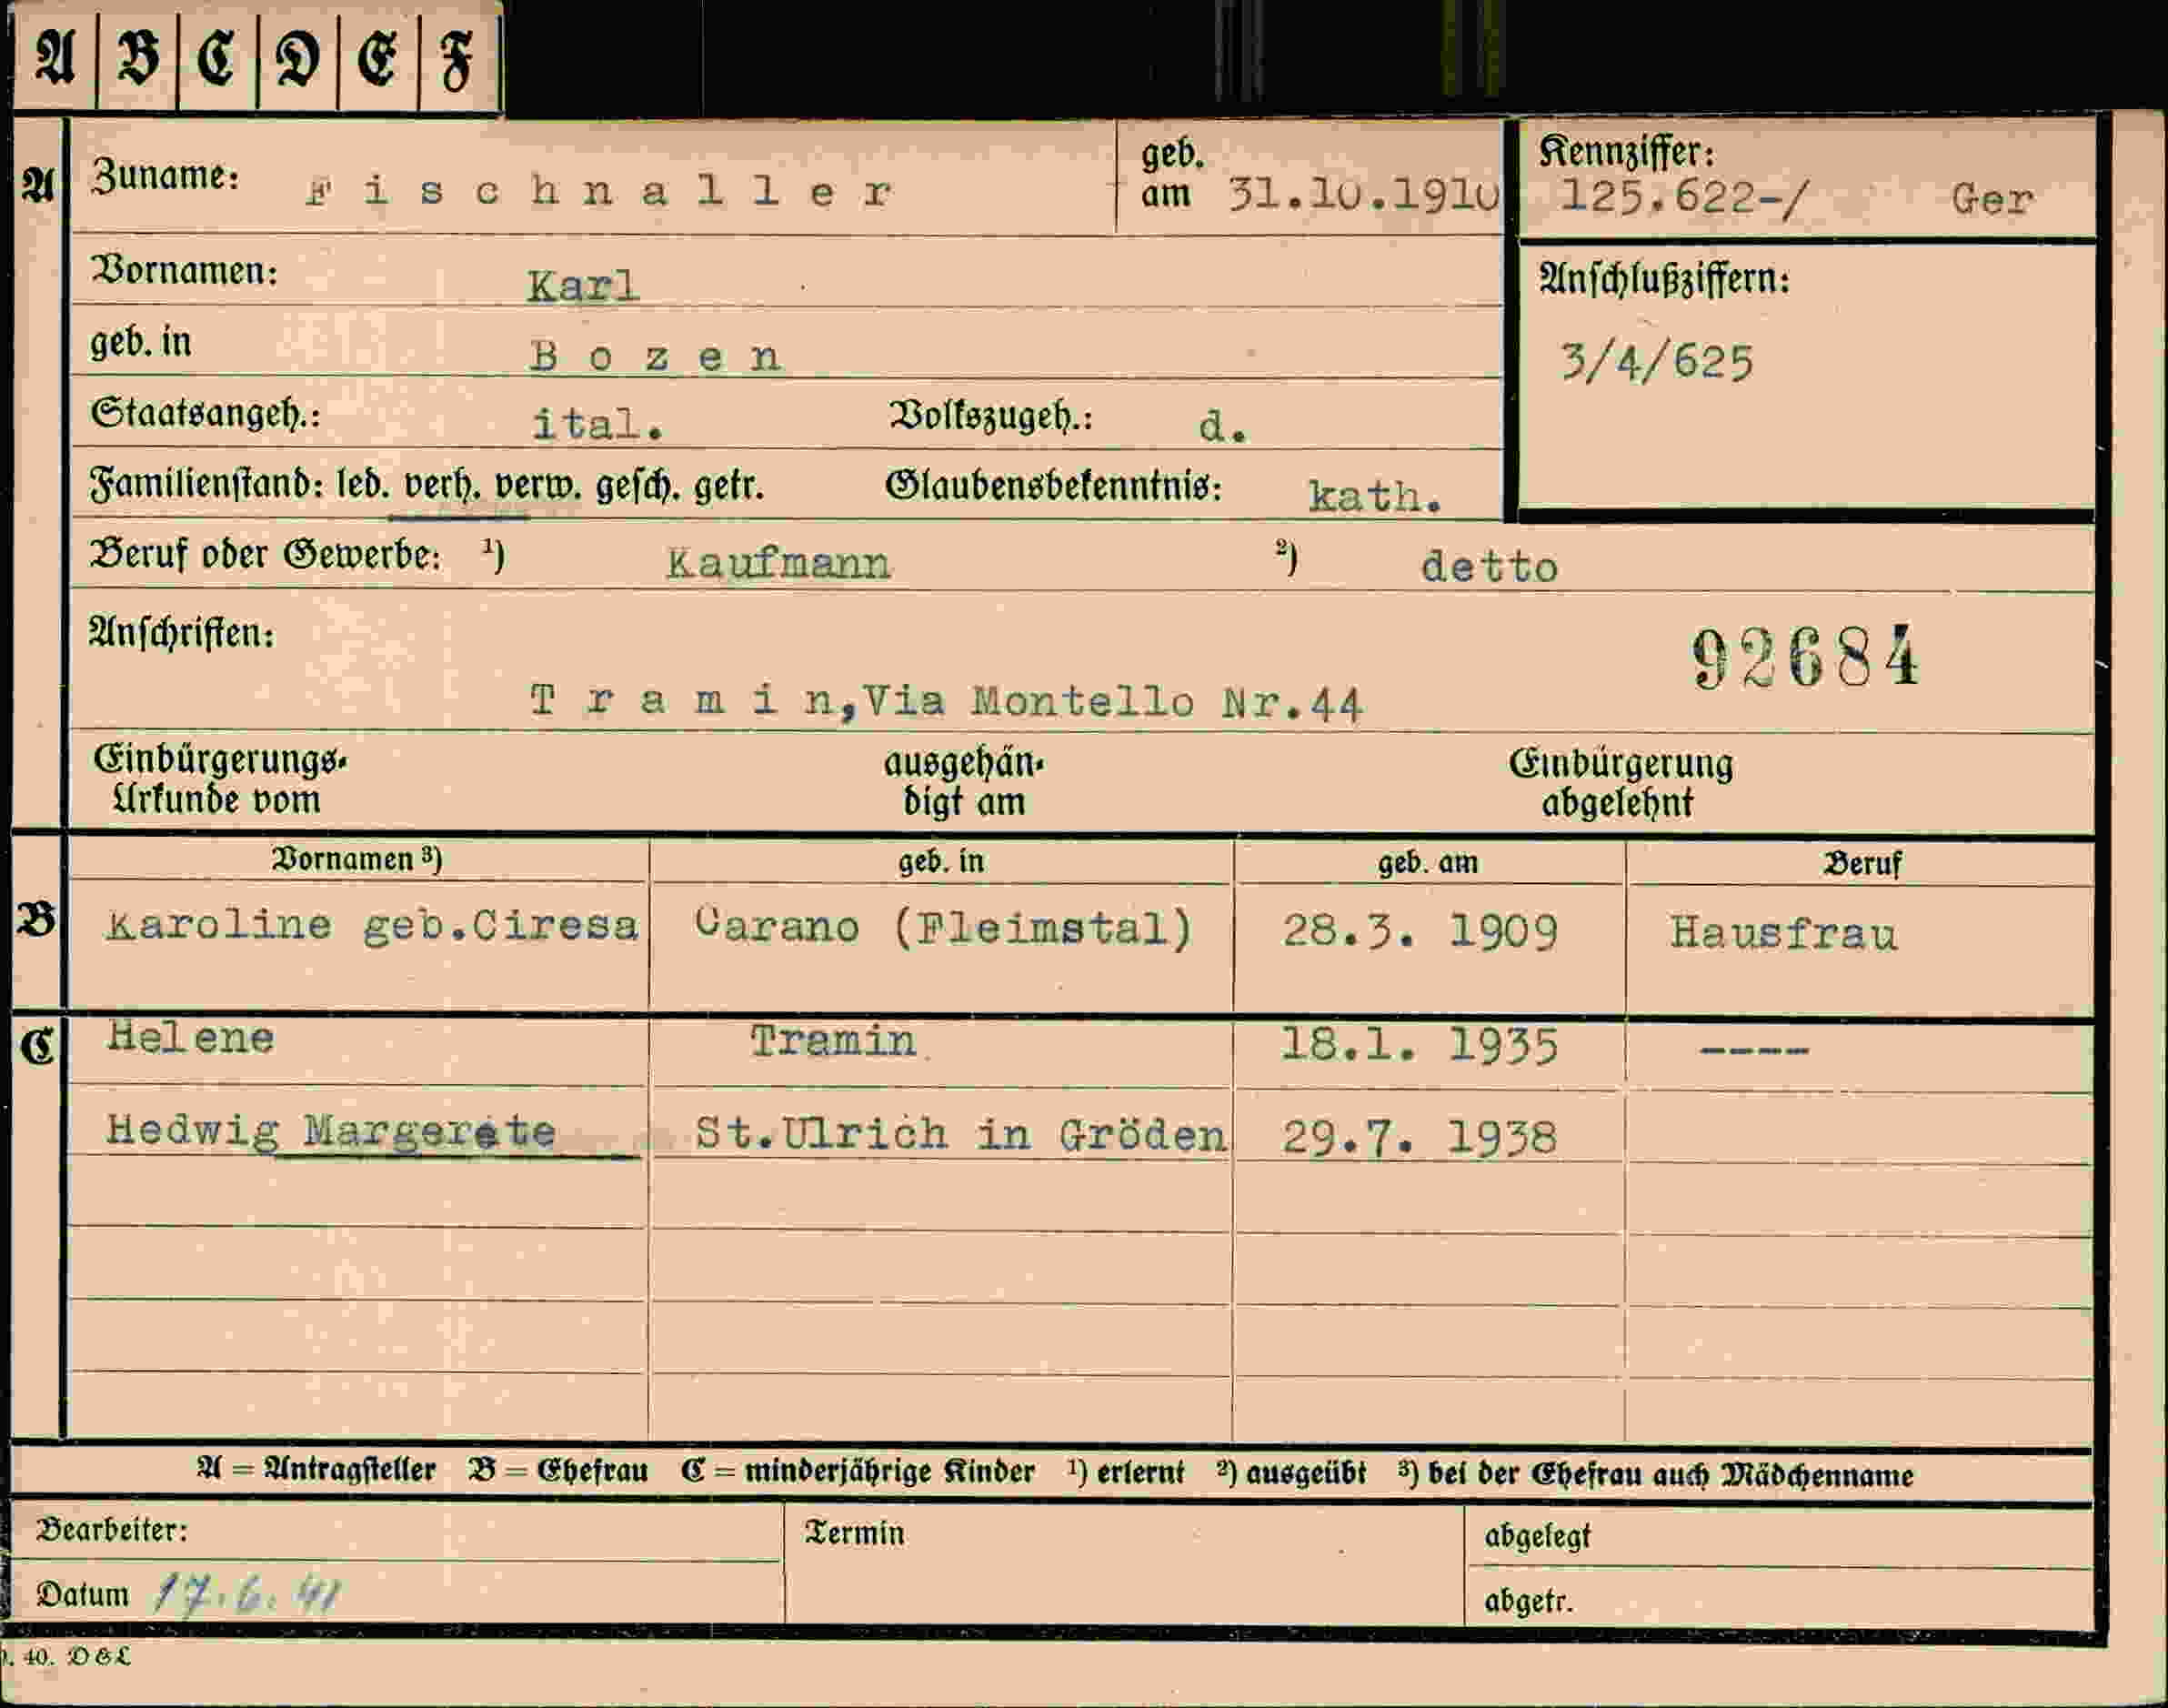 A B C D E F
A Zuname: Fischnaller geb. am 31.10.1910 Kennziffer: 125.622-/ Ger
Vornamen: Karl Anschlußziffern:
geb. in Bozen 3/4/625
Staatsangeh.: ital. Volkszugeh.: d.
Familienstand: led. verh. verw. gesch. getr. Glaubensbekenntnis: kath.
Beruf oder Gewerbe: ¹) Kaufmann ²) detto
Anschriften: 92684
Tramin,Via Montello Nr.44
Einbürgerungs- ausgehän- Einbürgerung
Urkunde vom digt am abgelehnt
Vornamen ³) geb. in geb. am Beruf
B Karoline geb.Ciresa Carano (Fleimstal) 28.3. 1909 Hausfrau
C Helene Tramin 18.1. 1935 ----
Hedwig Margerete St.Ulrich in Gröden 29.7. 1938
A = Antragsteller B = Ehefrau C = minderjährige Kinder ¹) erlernt ²) ausgeübt ³) bei der Ehefrau auch Mädchenname
Bearbeiter: Termin abgelegt
Datum 17.6.41 abgetr.
40. D & L